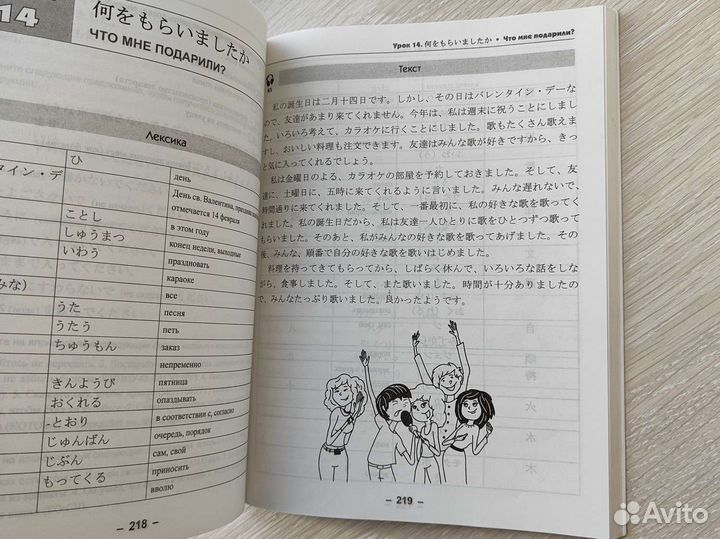 14
何をもらいましたか
ЧТО МНЕ ПОДАРИЛИ?
Лексика
ひ
день
タイン・デ
День св. Валентина,
отмечается 14 февраля
ことし
в этом году
しゅうまつ
конец недели, выходные
いわう
праздновать
караоке
みな)
все
うた
песня
うたう
петь
ちゅうもん
заказ
непременно
きんようび
пятница
おくれる
опаздывать
-とおり
в соответствии с, согласно
じゅんばん
очередь, порядок
じぶん
сам, свой
もってくる
приносить
вволю
– 218 –
Урок 14. 何をもらいましたか • Что мне подарили?
Текст
私の誕生日は二月十四日です。しかし、その日はバレンタイン・デーな
ので、友達があまり来てくれません。今年は、私は週末に祝うことにしまし
た。いろいろ考えて、カラオケに行くことにしました。歌もたくさん歌えま
すし、おいしい料理も注文できます。友達はみんな歌が好きですから、きっ
と気に入ってくれるでしょう。
私は金曜日のよる、カラオケの部屋を予約しておきました。そして、友
達に、土曜日に、五時に来てくれるように言いました。みんな遅れないで、
時間通りに来てくれました。そして、一番最初に、私の好きな歌を歌ってく
れました。私の誕生日だから、私は友達一人ひとりに歌をひとつずつ歌って
もらいました。そのあと、私がみんなの好きな歌を歌ってあげました。その
後、みんな、順番で自分の好きな歌を歌いはじめました。
料理を持ってきてもらってから、しばらく休んで、いろいろな話をしな
がら、食事しました。そして、また歌いました。時間が十分ありましたの
で、みんなたっぷり歌いました。良かったようです。
– 219 –
Avito